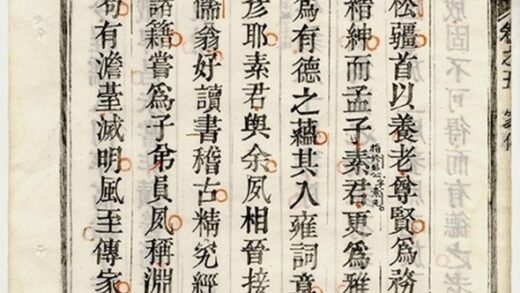 卷之五 家傳
成固不可得而有德之
松疆首以養老尊賢爲務
縉紳而孟子素君更爲雅
爲有德之蘊其入雍詞意
彥耶素君與余夙相晉接
儒翁好讀書稽古精究經
諸籍嘗爲子弟員夙稱淵
苟有澹臺滅明風至傳家